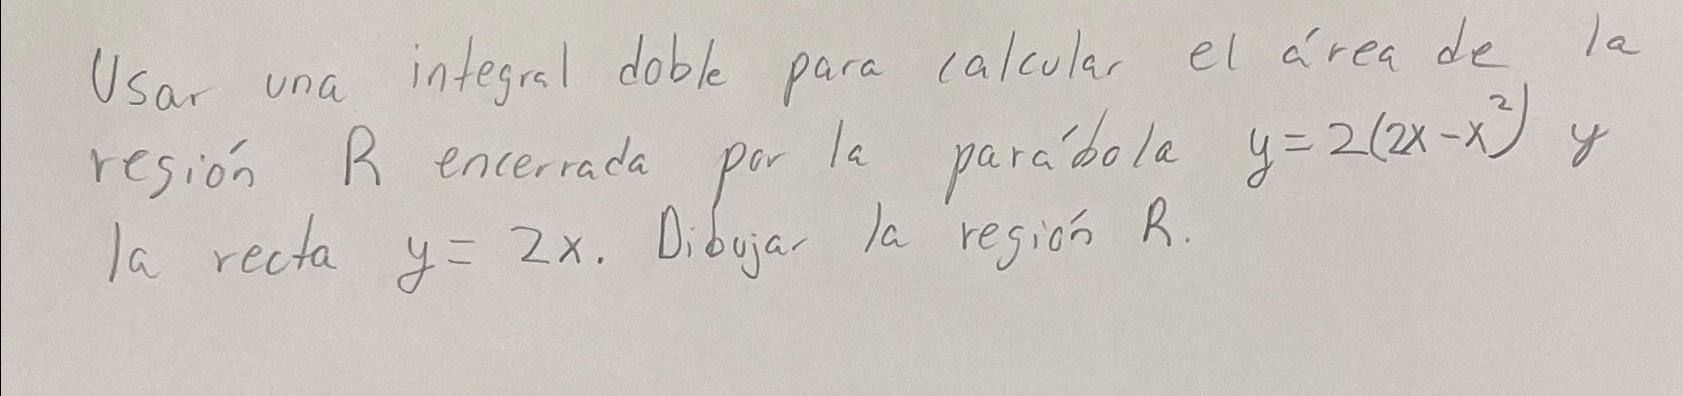 Usar una integral doble para calcular el área de la
región R encerrada por la parábola y=2(2x-x²) y
la recta y=2x. Dibujar la región R.